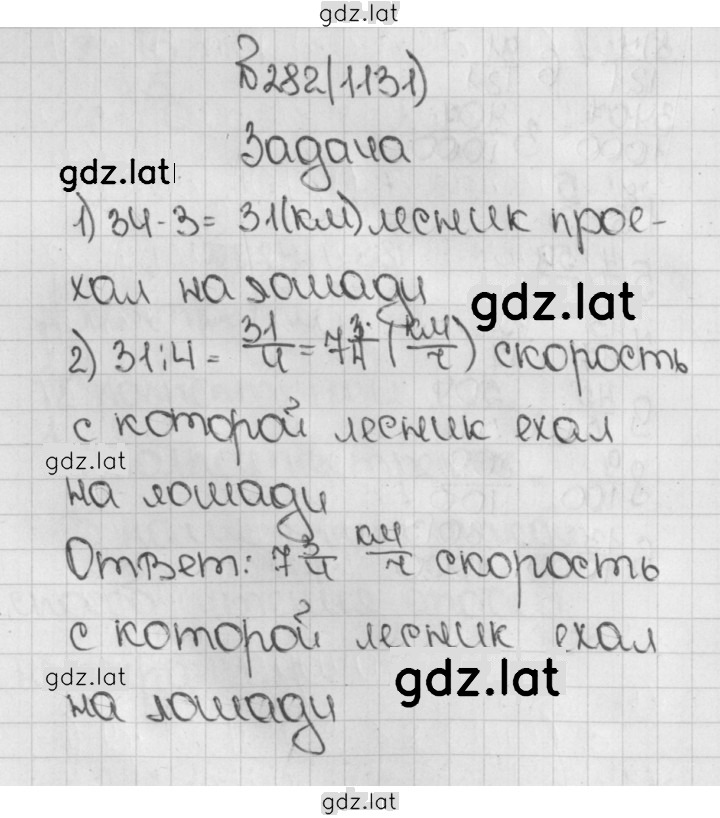 gdz.lat
В282(1131)
Задача
gdz.lat
1) 34-3= 31(км) лесник прое-
хал на лошади
gdz.lat
2) 31:4 = 31/4 = 7 3/4 (км/ч) скорость
с которой лесник ехал
gdz.lat
на лошади
Ответ: 7 3/4 км/ч скорость
с которой лесник ехал
gdz.lat
gdz.lat
на лошади
gdz.lat